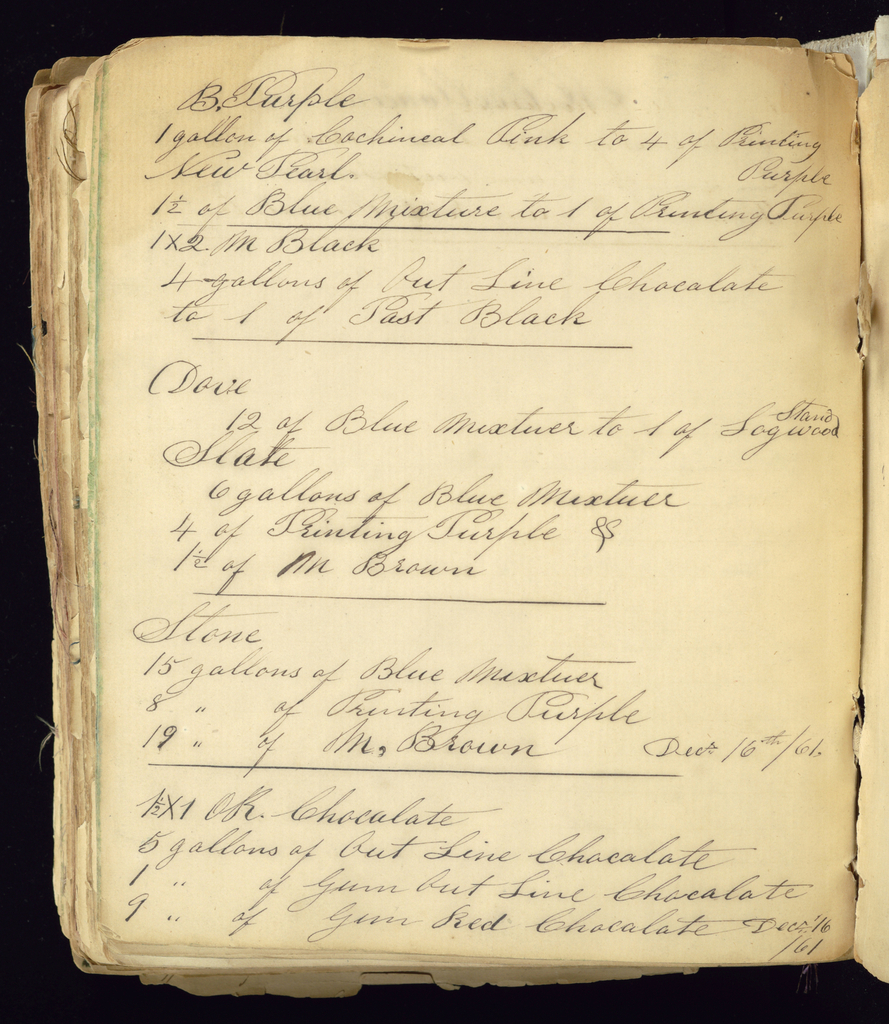 B. Purple
1 gallon of Cochineal Pink to 4 of Printing
Purple
New Pearl.
1½ of Blue Mixture to 1 of Printing Purple
1X2 M Black
4 gallons of Out Line Chocalate
to 1 of Past Black
Dove
12 of Blue Mixtuer to 1 of Logwood
Stand
Slate
6 gallons of Blue Mixtuer
4 of Printing Purple &
1½ of M Brown
Stone
15 gallons of Blue Mixtuer
8 " of Printing Purple
19 " of M. Brown Decr 16th/61
1½X1 OR. Chocalate
5 gallons of Out Line Chocalate
1 " of Gum Out Line Chocalate
9 " of Gum Red Chocalate Decr 16
/61